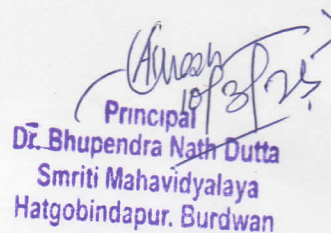 10/3/25
Principal
Dr. Bhupendra Nath Dutta
Smriti Mahavidyalaya
Hatgobindapur. Burdwan